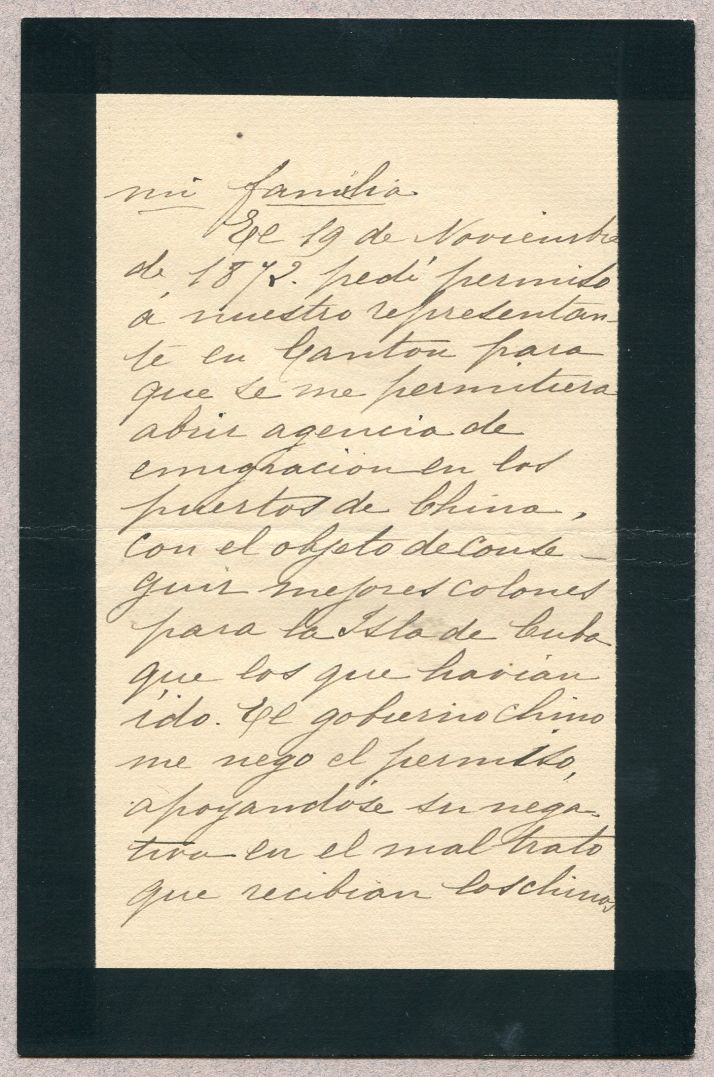 mi familia
El 19 de Noviembre
de 1872. pedí permiso
á nuestro representan-
te en Canton para
que se me permitiera
abrir agencia de
emigracion en los
puertos de China,
con el objeto de conse-
guir mejores colonos
para la Isla de Cuba
que los que havian
ido. El gobierno chino
me nego el permiso,
apoyandose su nega-
tiva en el mal trato
que recibian los chinos